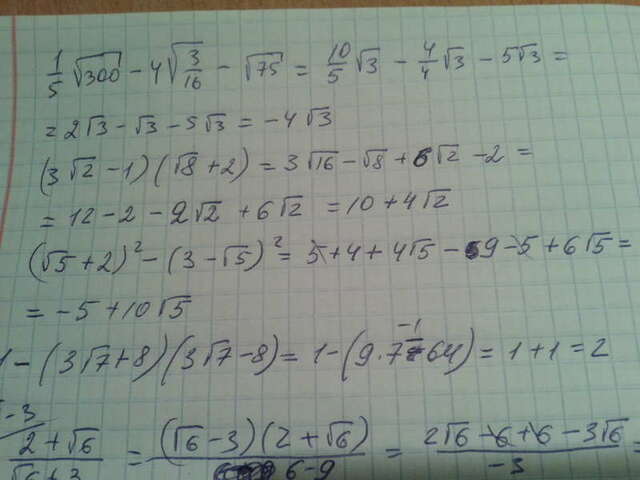 1/5 √300 - 4√3/16 - √75 = 10/5 √3 - 4/4 √3 - 5√3 =
= 2√3 - √3 - 5√3 = -4√3
(3√2 - 1)(√8 + 2) = 3√16 - √8 + 6√2 - 2 =
= 12 - 2 - 2√2 + 6√2 = 10 + 4√2
(√5 + 2)² - (3 - √5)² = 5 + 4 + 4√5 - 9 - 5 + 6√5 =
= -5 + 10√5
1 - (3√7 + 8)(3√7 - 8) = 1 - (9·7 - 64) = 1 + 1 = 2
-1
√-3
2 + √6 / √6 + 3 = (√6 - 3)(2 + √6) / 6 - 9 = 2√6 - 6 + 6 - 3√6 / -3 =